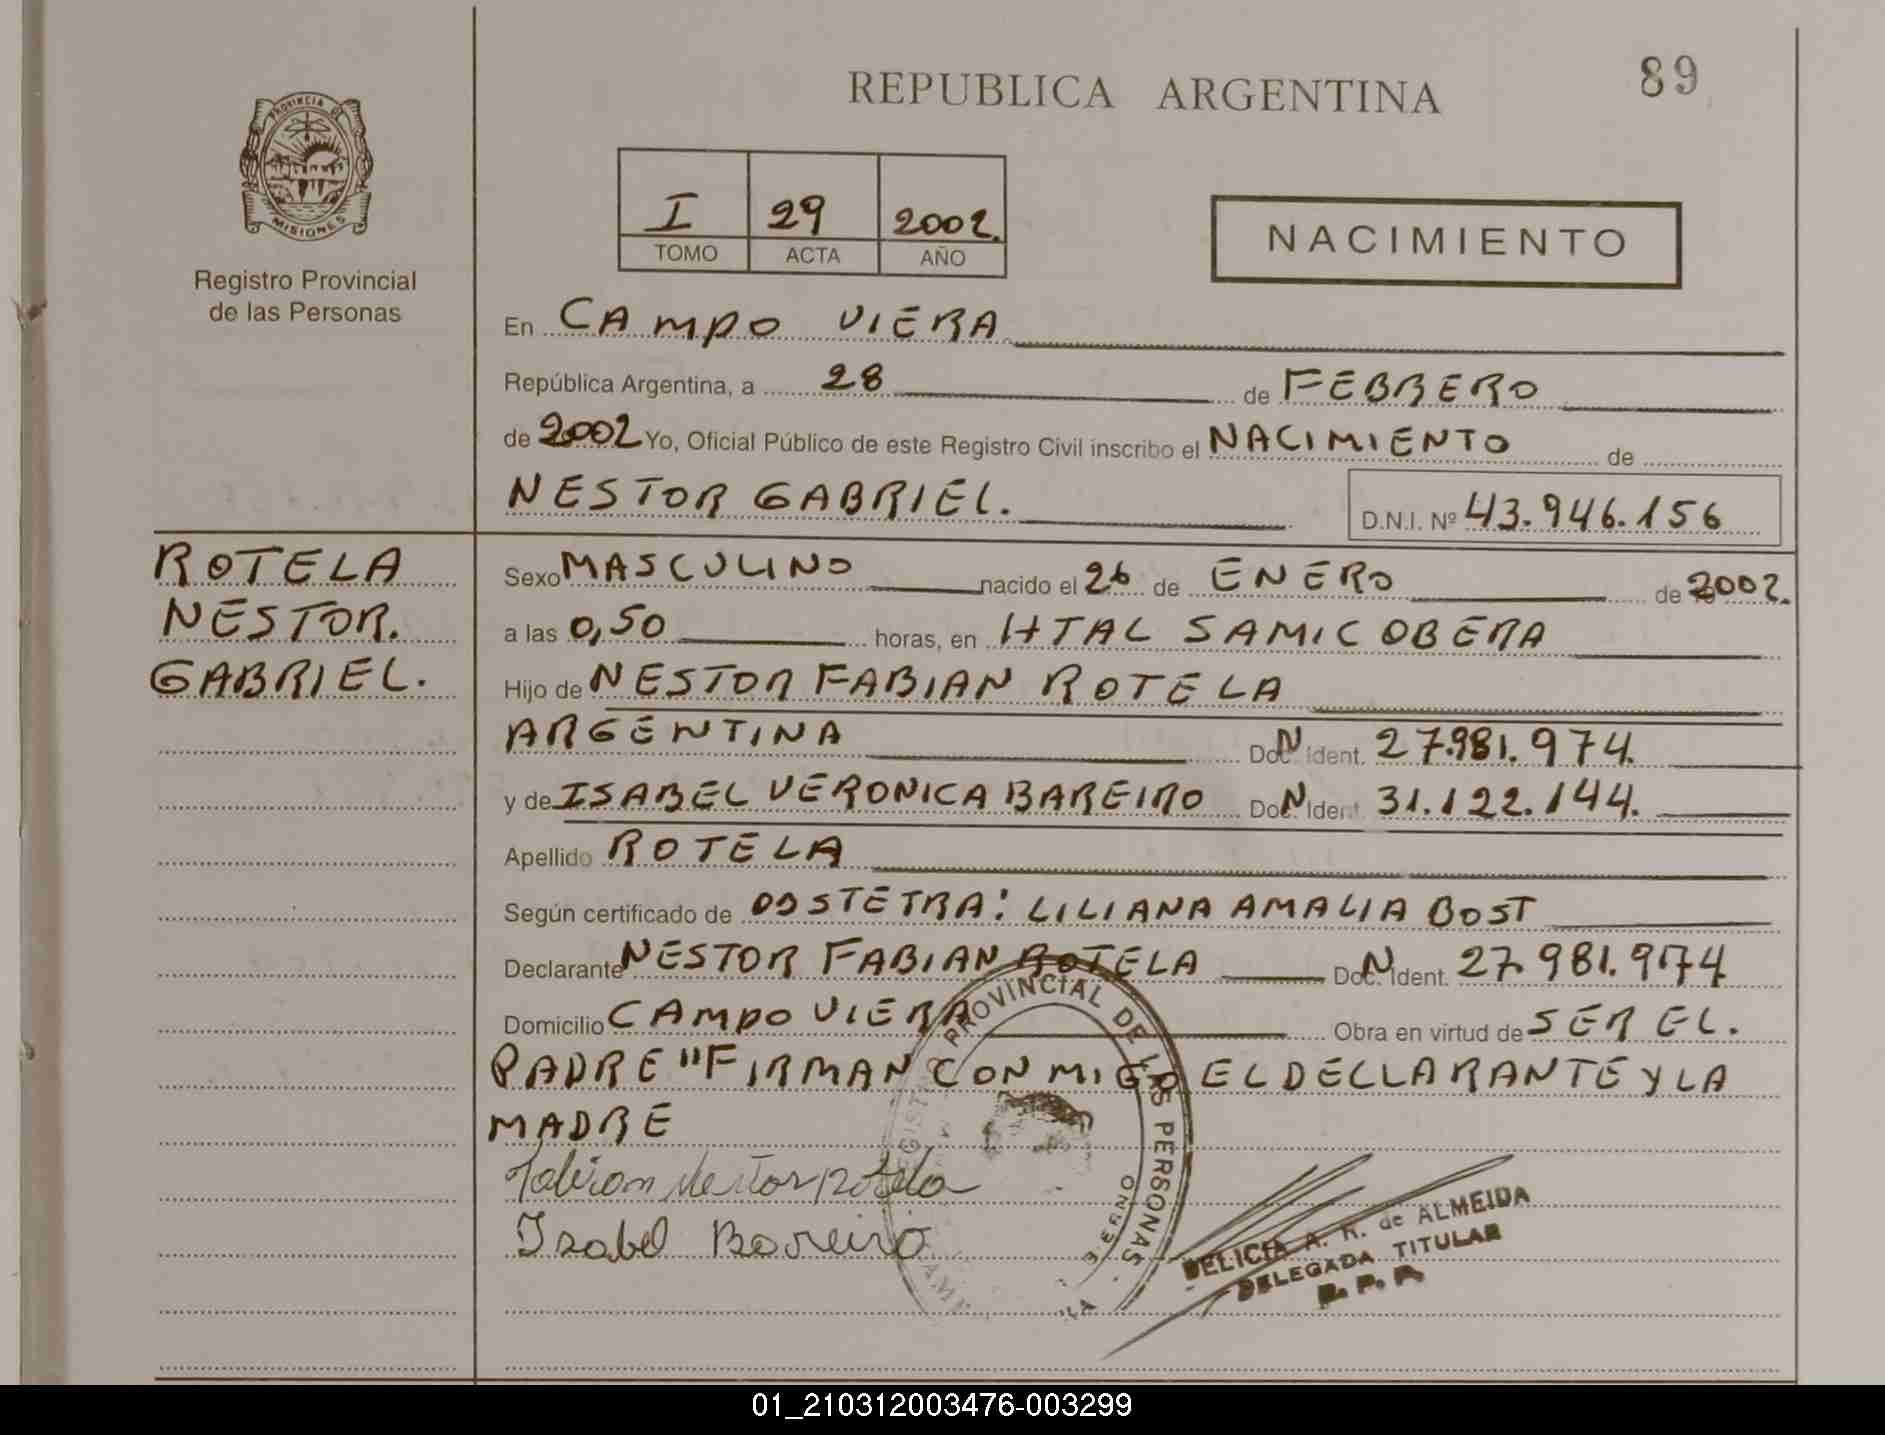 REPUBLICA ARGENTINA
89
PROVINCIA DE
MISIONES
Registro Provincial
de las Personas
I 29 2002.
TOMO ACTA AÑO
NACIMIENTO
En CAMPO VIERA
República Argentina, a 28 de FEBRERO
de 2002 Yo, Oficial Público de este Registro Civil inscribo el NACIMIENTO de
NESTOR GABRIEL.
D.N.I. Nº 43.946.156
ROTELA
NESTOR.
GABRIEL.
Sexo MASCULINO nacido el 26 de ENERO de 2002.
a las 0,50 horas, en HTAL SAMIC OBERA
Hijo de NESTOR FABIAN ROTELA
ARGENTINA Doc. N Ident. 27.981.974.
y de ISABEL VERONICA BAREIRO Doc. N Ident. 31.122.144.
Apellido ROTELA
Según certificado de OBSTETRA: LILIANA AMALIA BOST
Declarante NESTOR FABIAN ROTELA Doc. N Ident. 27.981.974
Domicilio CAMPO VIERA Obra en virtud de SER EL.
PADRE "FIRMAN CONMIGO EL DECLLARANTE Y LA
MADRE
Fabian Nestor rotela
Isabel Bareiro
PROVINCIAL DE LAS PERSONAS
DELICIA A. R. de ALMEIDA
DELEGADA TITULAR
R. P. P.
01_210312003476-003299